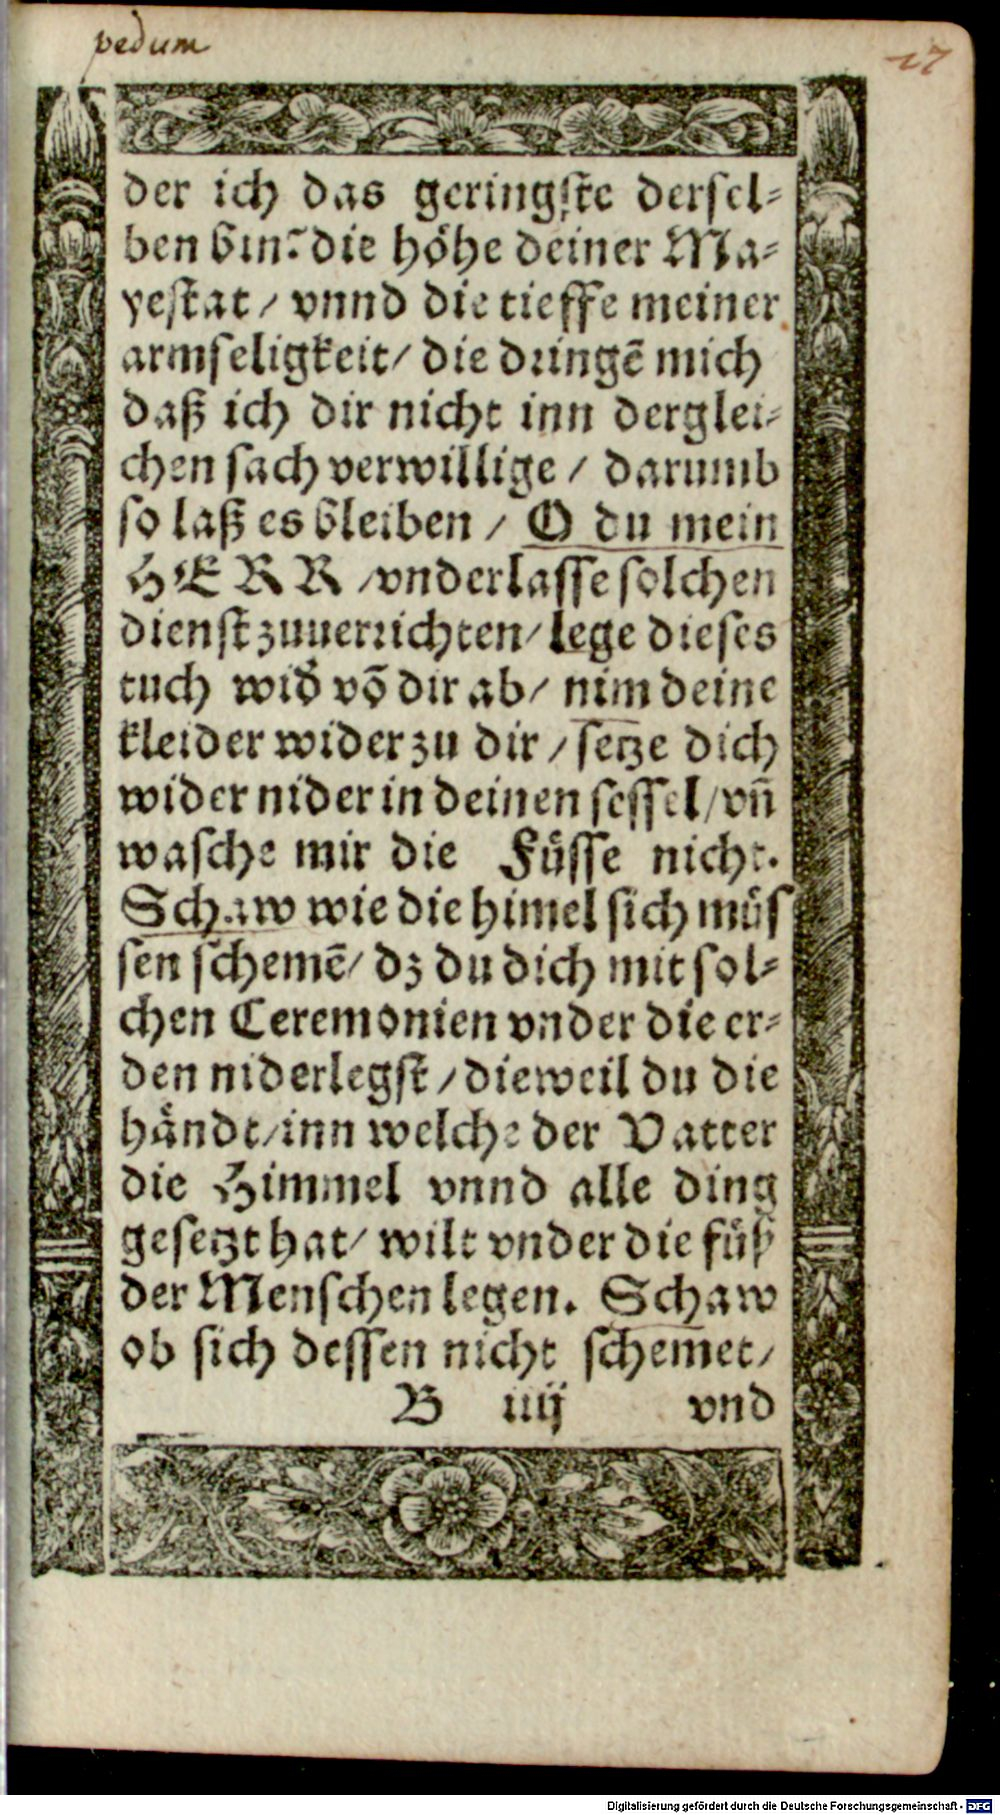 pedum
17
der ich das geringste dersel-
ben bin? die höhe deiner Ma-
yestat/ vnnd die tieffe meiner
armseligkeit/ die dringē mich
daß ich dir nicht inn derglei-
chen sach verwillige / darumb
so laß es bleiben / O du mein
HERR /vnderlasse solchen
dienst zuuerrichten/ lege dieses
tuch wid̃ võ dir ab/ nim deine
kleider wider zu dir / setze dich
wider nider in deinen sessel/ vñ
wasche mir die Füsse nicht.
Schaw wie die himel sich müs
sen schemē/ dz du dich mit sol-
chen Ceremonien vnder die er-
den niderlegst / dieweil du die
händt/ inn welche der Vatter
die Himmel vnnd alle ding
gesetzt hat/ wilt vnder die füß
der Menschen legen. Schaw
ob sich dessen nicht schemet/
B iiij vnd
Digitalisierung gefördert durch die Deutsche Forschungsgemeinschaft - DFG